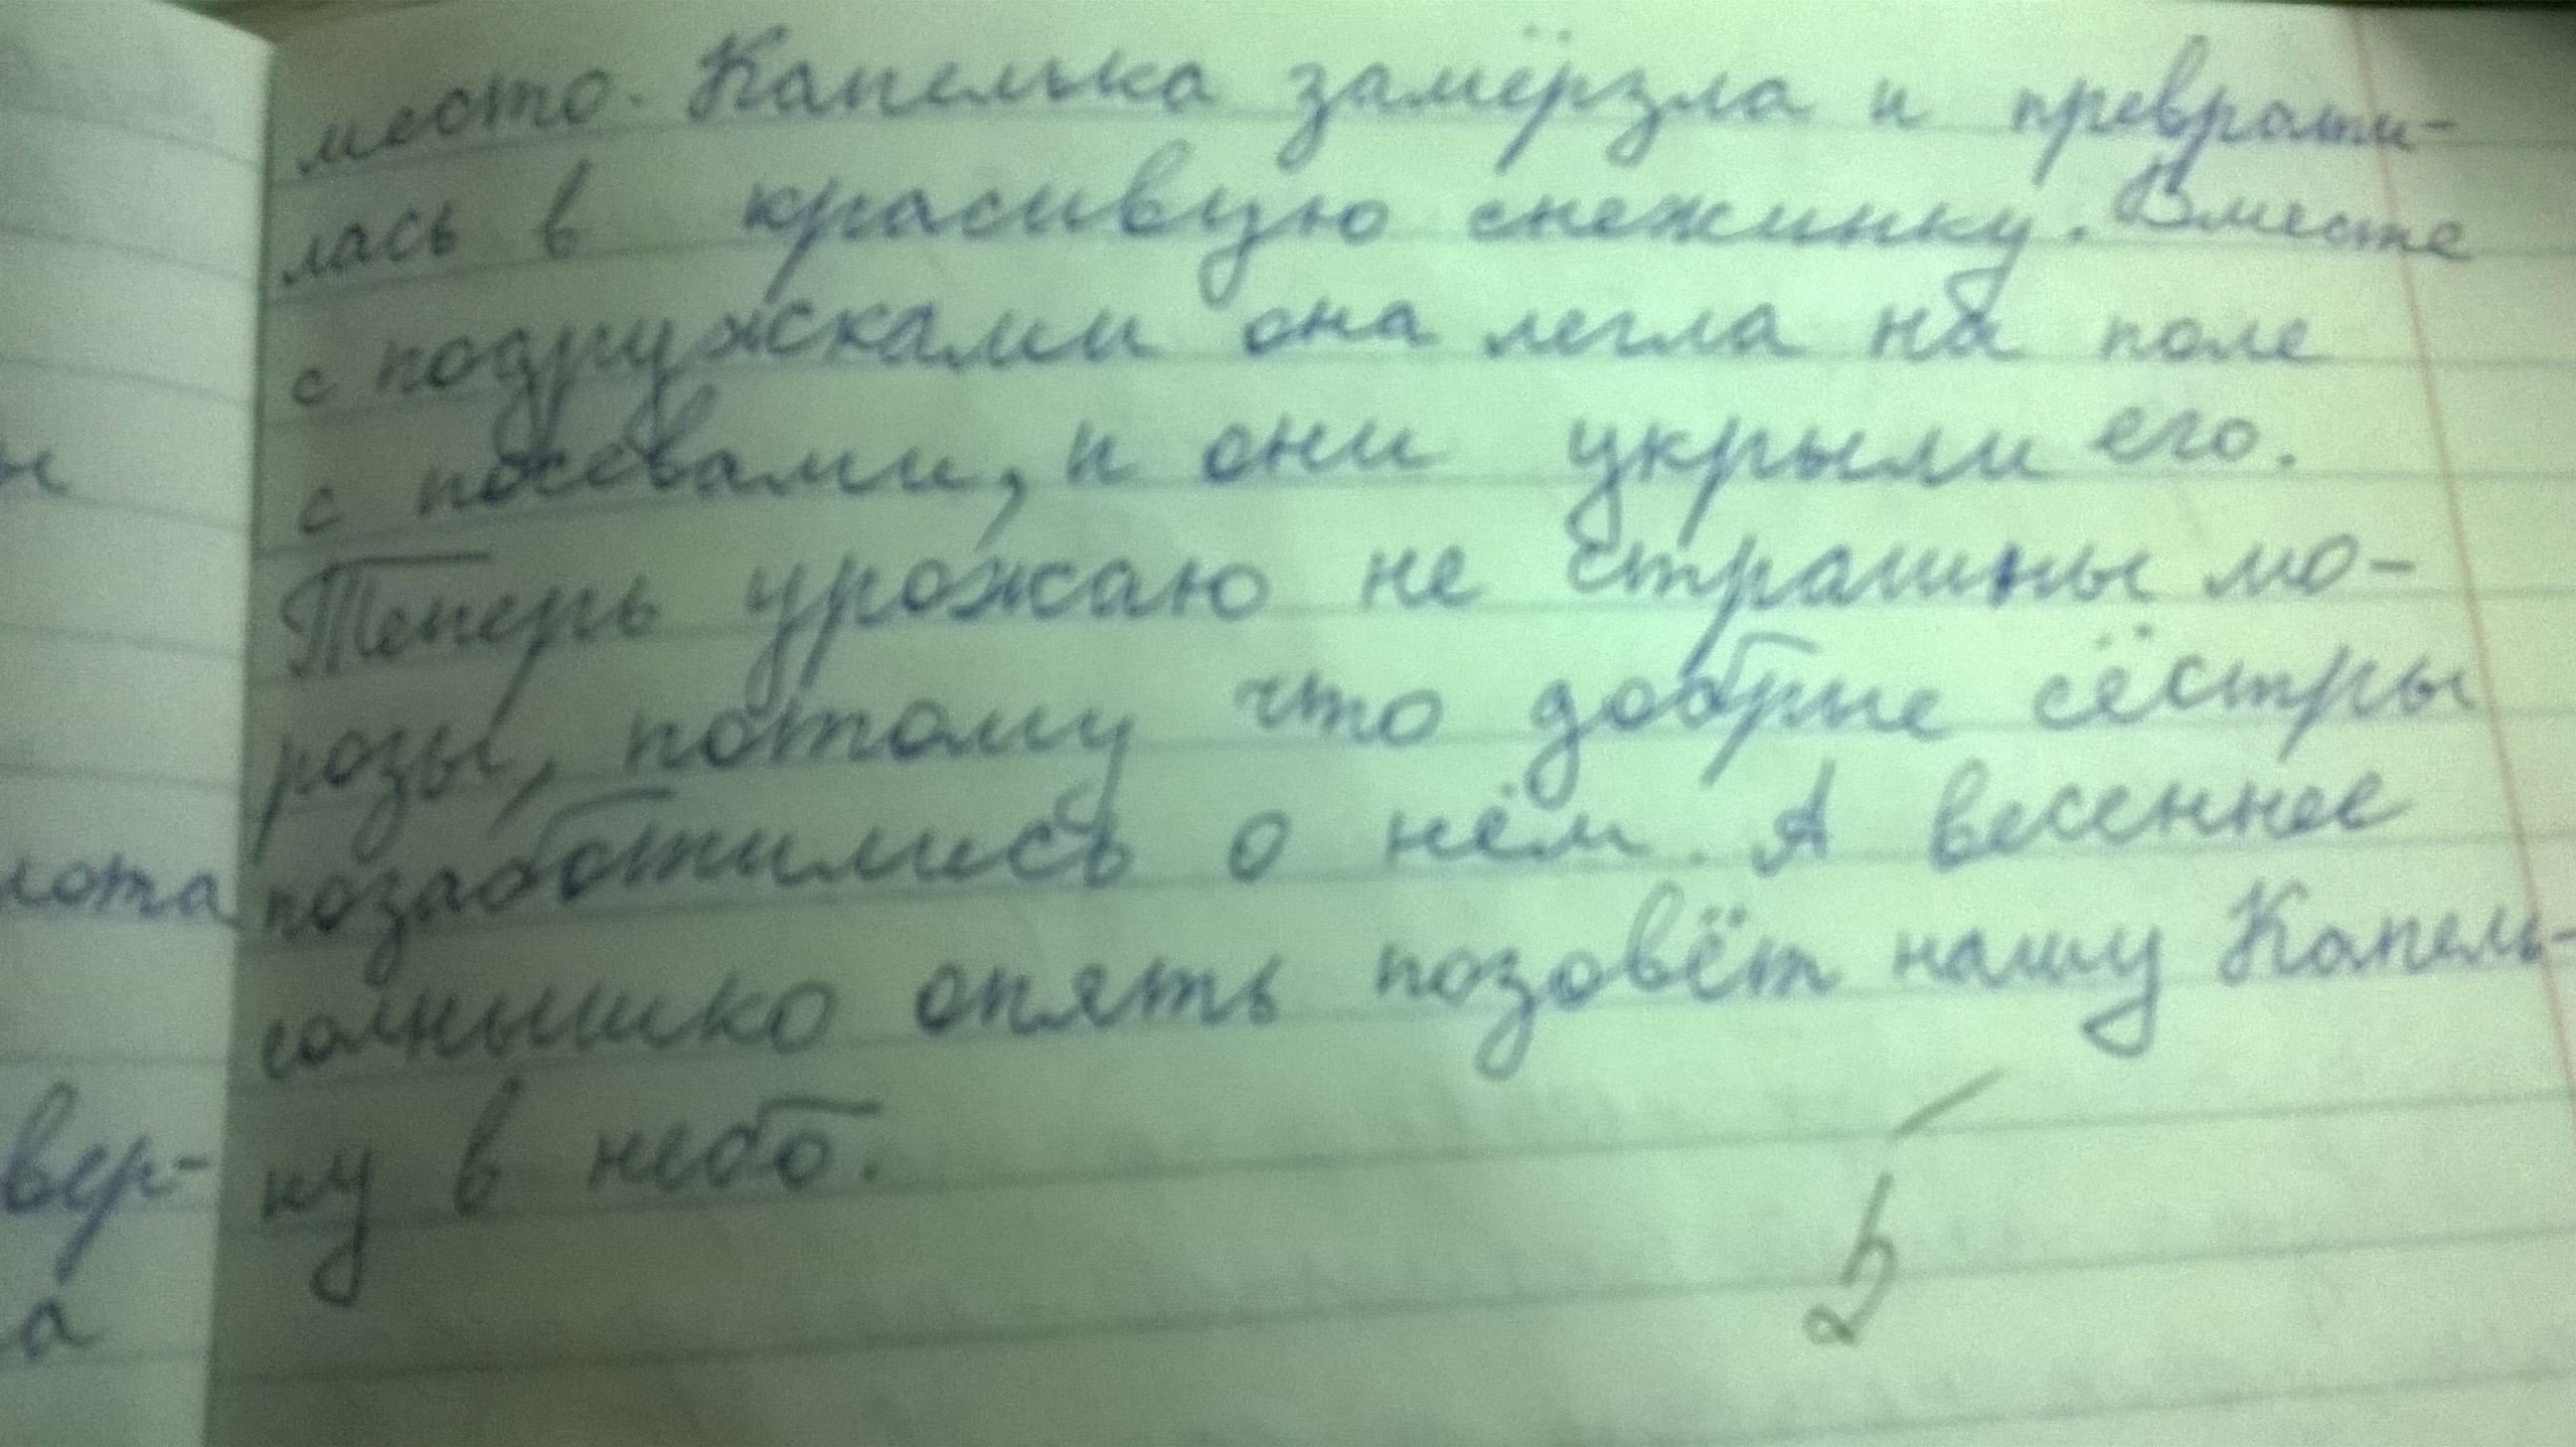 место. Капелька замёрзла и преврати-
лась в красивую снежинку. Вместе
с подружками она легла на поле
с посевами, и они укрыли его.
Теперь урожаю не страшны мо-
розы, потому что добрые сёстры
позаботились о нём. А весеннее
солнышко опять позовёт нашу Капель-
ку в небо.
5